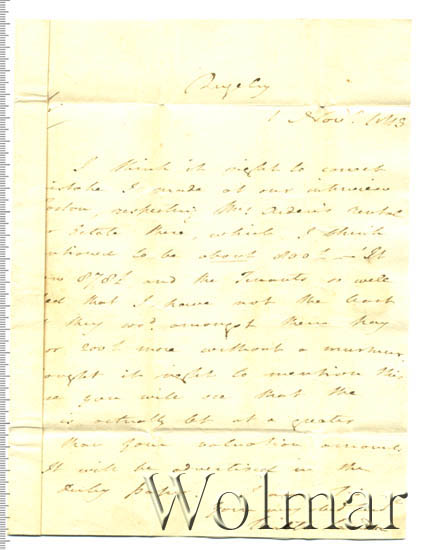 Rugely
1 Novr. 1843
I think it right to correct
mistake I made at our interview
respecting Mrs Arden's rental
Estate there, which I think
to be about 800£ - It
878£ and the Tenants so well
that I have not the least
they wod. amongst them pay
or 200£ more without a murmur
ought it right to mention this
you will see that the
is actually let at a greater
than your valuation amount.
It will be advertised in the
Derby papers
Wolmar